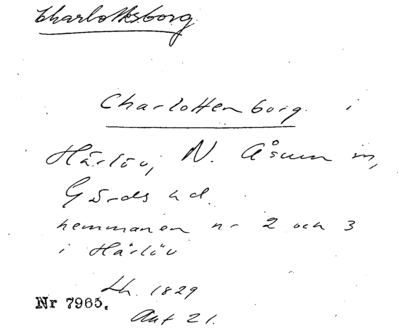 Charlottsborg
Charlottenborg i
Härlöv, N. Åsum sn,
Gärds hd.
hemmanen nr 2 och 3
i Härlöv
Lh. 1829
Nr 7965.
Akt 21.